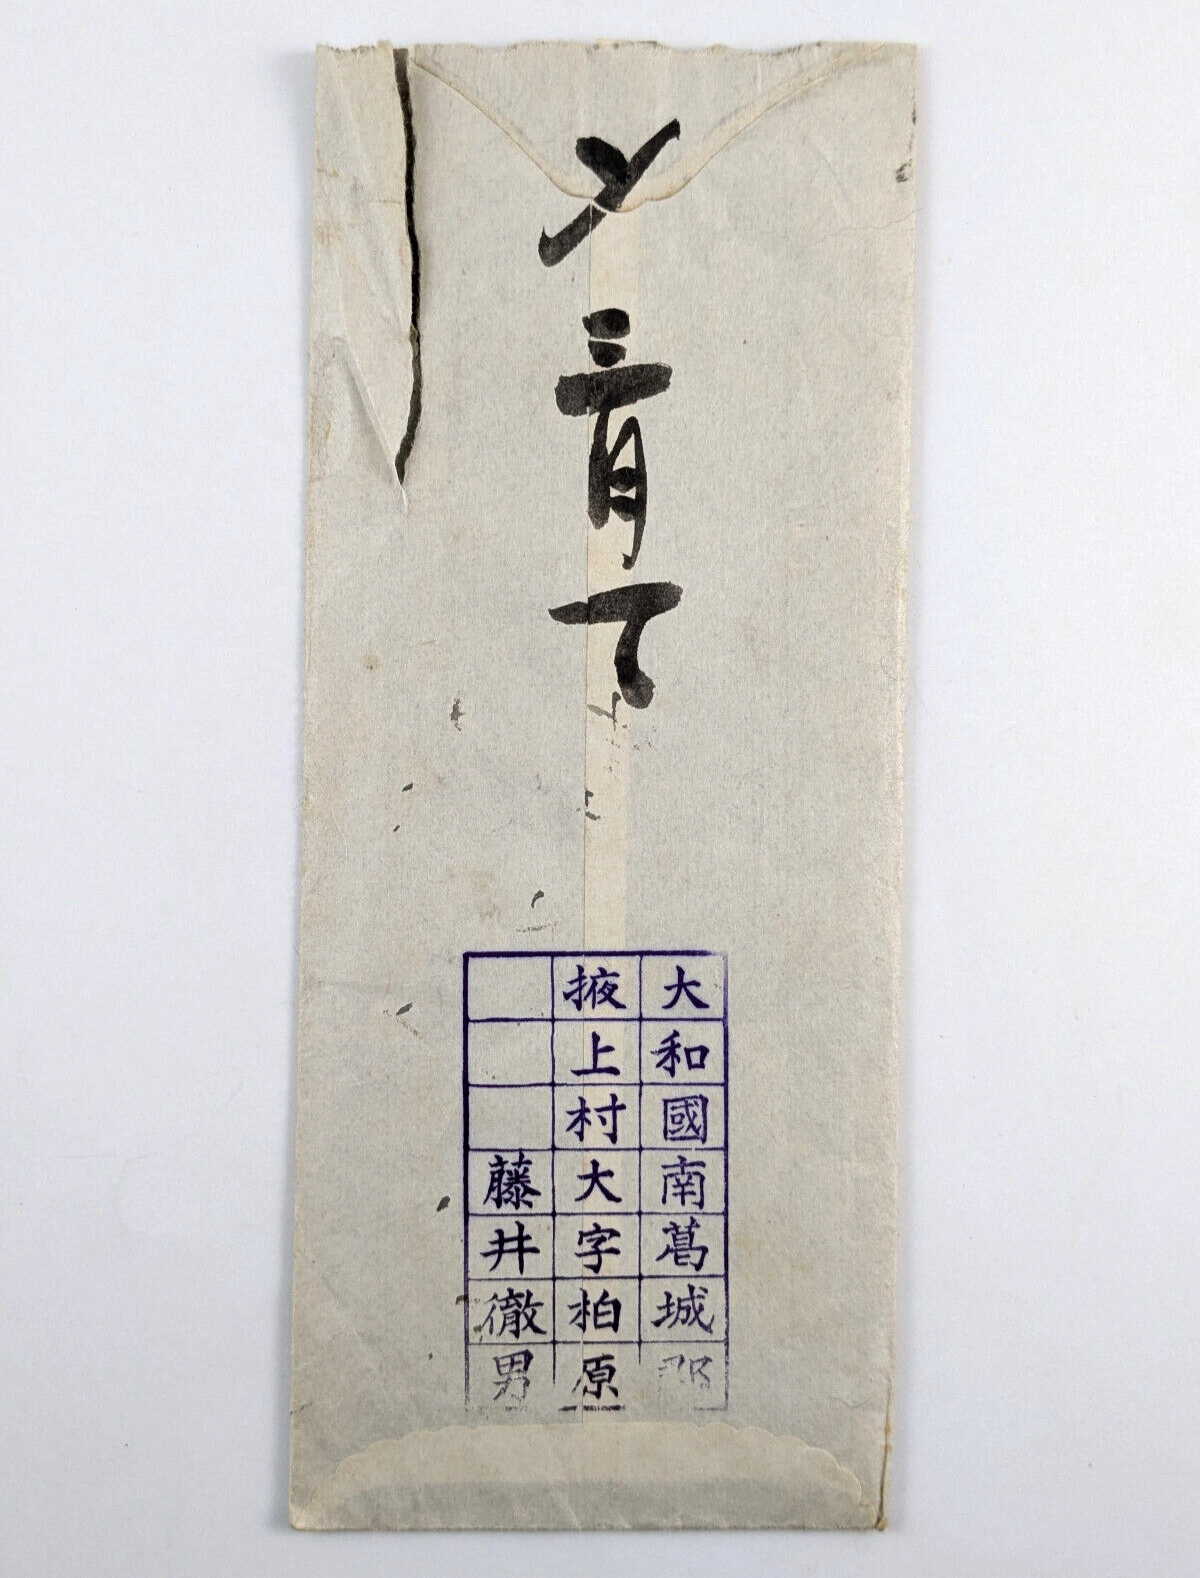 〆
三月
大和國南葛城郡
掖上村大字柏原
藤井徹男